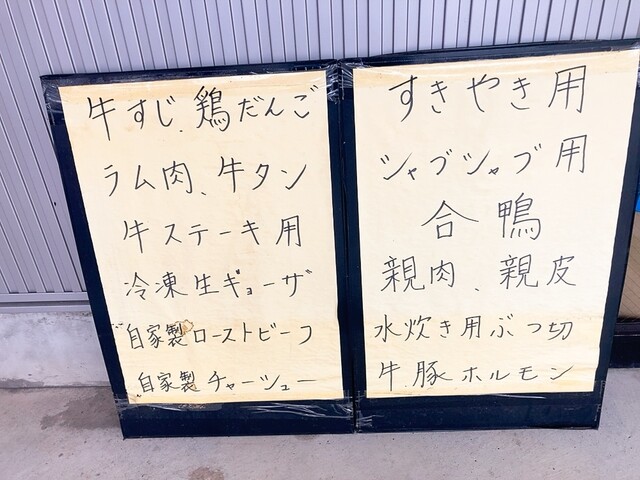 牛すじ、鶏だんご
ラム肉、牛タン
牛ステーキ用
冷凍生ギョーザ
自家製ローストビーフ
自家製チャーシュー
すきやき用
シャブシャブ用
合鴨
親肉、親皮
水炊き用ぶつ切
牛.豚ホルモン